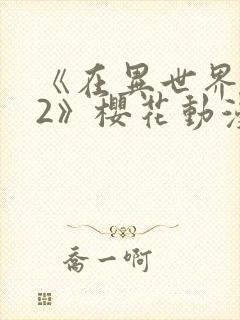 《在異世界
2》櫻花動漫
喬一啊